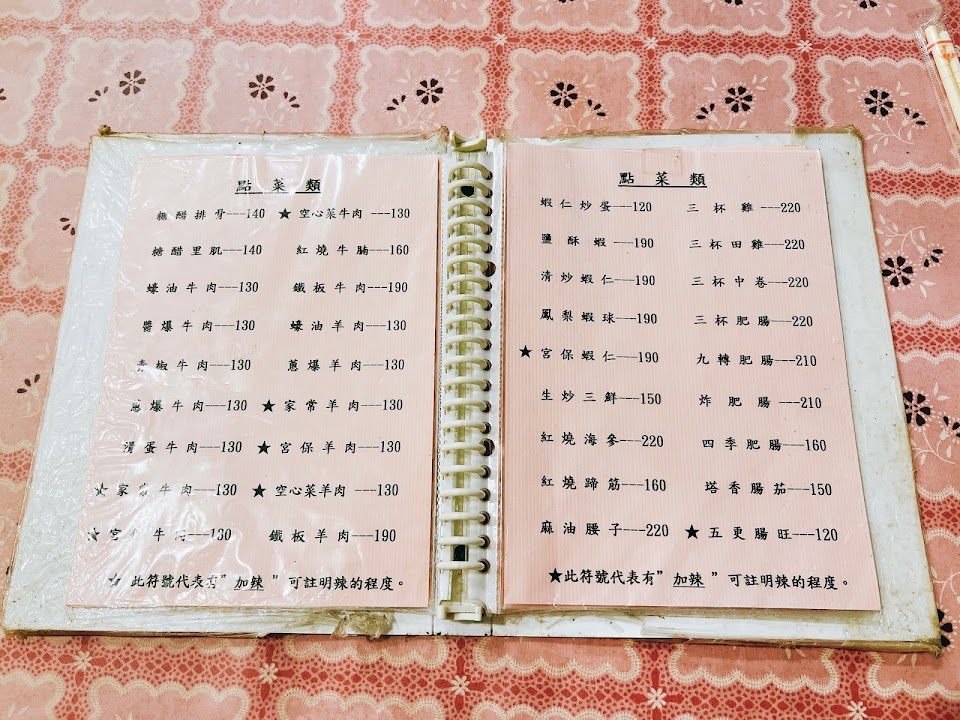 點菜類
糖醋排骨---140 ★空心菜牛肉---130
糖醋里肌---140 紅燒牛腩---160
蠔油牛肉---130 鐵板牛肉---190
醬爆牛肉---130 蠔油羊肉---130
青椒牛肉---130 蔥爆羊肉---130
蔥爆牛肉---130 ★家常羊肉---130
滑蛋牛肉---130 ★宮保羊肉---130
★家常牛肉---130 ★空心菜羊肉---130
★宮保牛肉---130 鐵板羊肉---190
★此符號代表有"加辣"可註明辣的程度。
點菜類
蝦仁炒蛋---120 三杯雞---220
鹽酥蝦---190 三杯田雞---220
清炒蝦仁---190 三杯中卷---220
鳳梨蝦球---190 三杯肥腸---220
★宮保蝦仁---190 九轉肥腸---210
生炒三鮮---150 炸肥腸---210
紅燒海參---220 四季肥腸---160
紅燒蹄筋---160 塔香腸茄---150
麻油腰子---220 ★五更腸旺---120
★此符號代表有"加辣"可註明辣的程度。